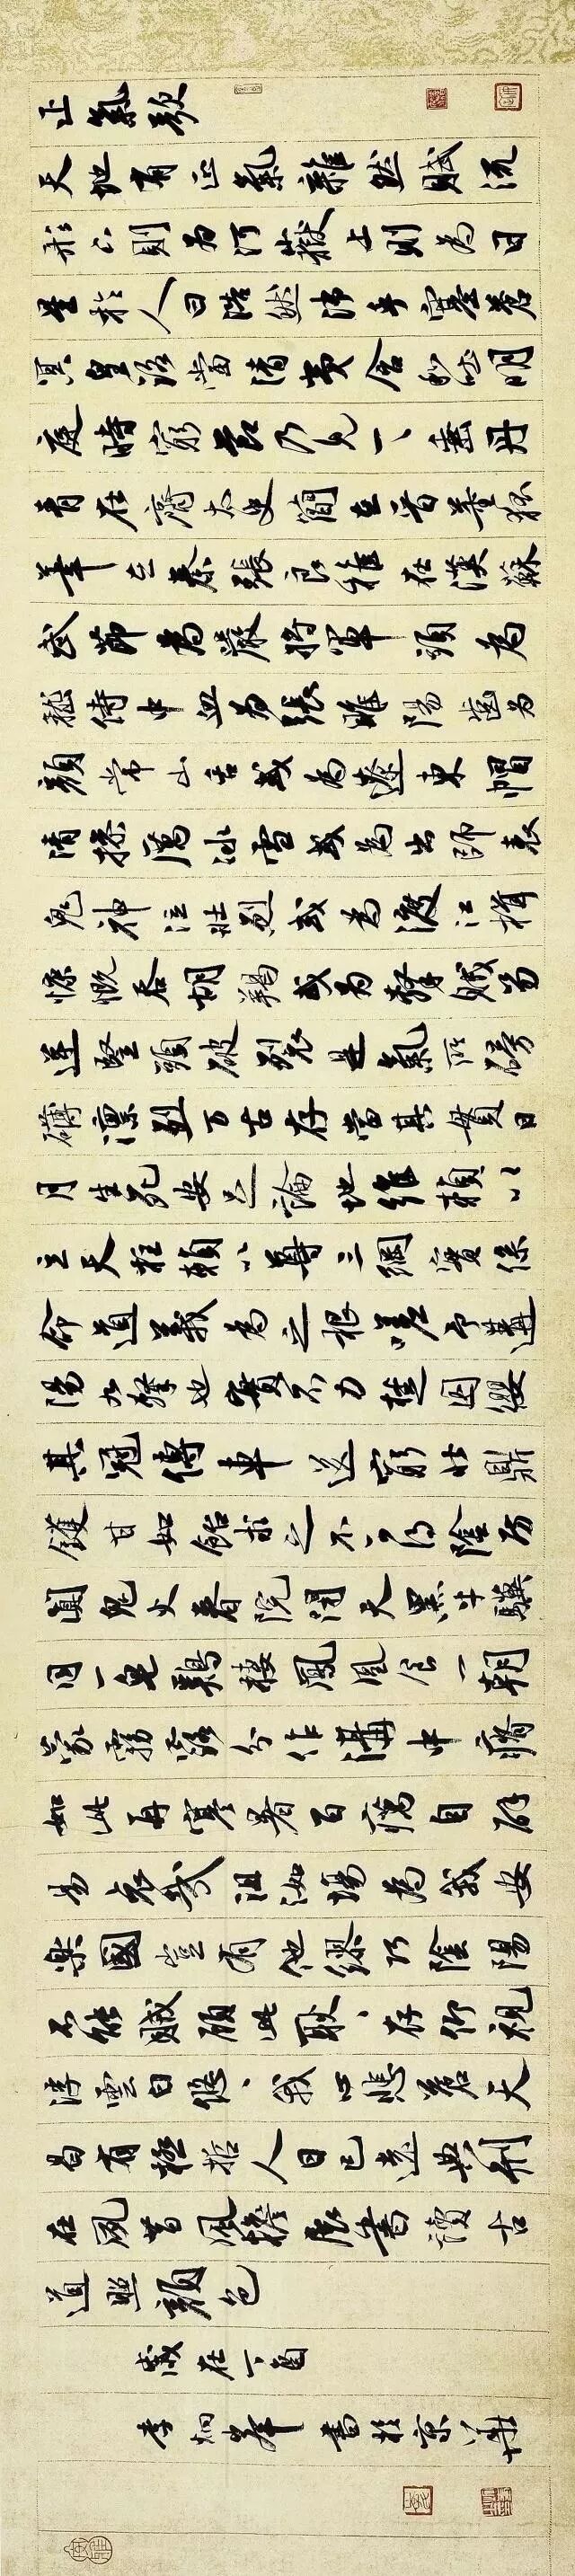 正氣歌
天地有正氣雜然賦流
形下則為河嶽上則為日
星於人曰浩然沛乎塞蒼
冥皇路當清夷含和吐明
庭時窮節乃見一一垂丹
青在齊太史簡在晉董狐
筆在秦張良椎在漢蘇
武節為嚴將軍頭為
嵇侍中血為張睢陽齒為
顏常山舌或為遼東帽
清操厲冰雪或為出師表
鬼神泣壯烈或為渡江楫
慷慨吞胡羯或為擊賊笏
逆豎頭破裂是氣所磅
礴凜烈万古存當其貫日
月生死安足論地維賴以
立天柱賴以尊三綱實係
命道義為之根嗟予遘
陽九隸也實不力楚囚纓
其冠傳車送窮北鼎
鑊甘如飴求之不可得陰房
闐鬼火春院閟天黑牛驥
同一皂雞棲鳳凰食一朝
蒙霧露分作溝中瘠
如此再寒暑百癘自辟
易哀哉沮洳場為我安
樂國豈有他繆巧陰陽
不能賊顧此耿耿存仰視
浮雲白悠悠我心悲蒼天
曷有極哲人日已遠典刑
在夙昔風檐展書讀古
道照顏色
歲在丁酉
李炯峰書於京華